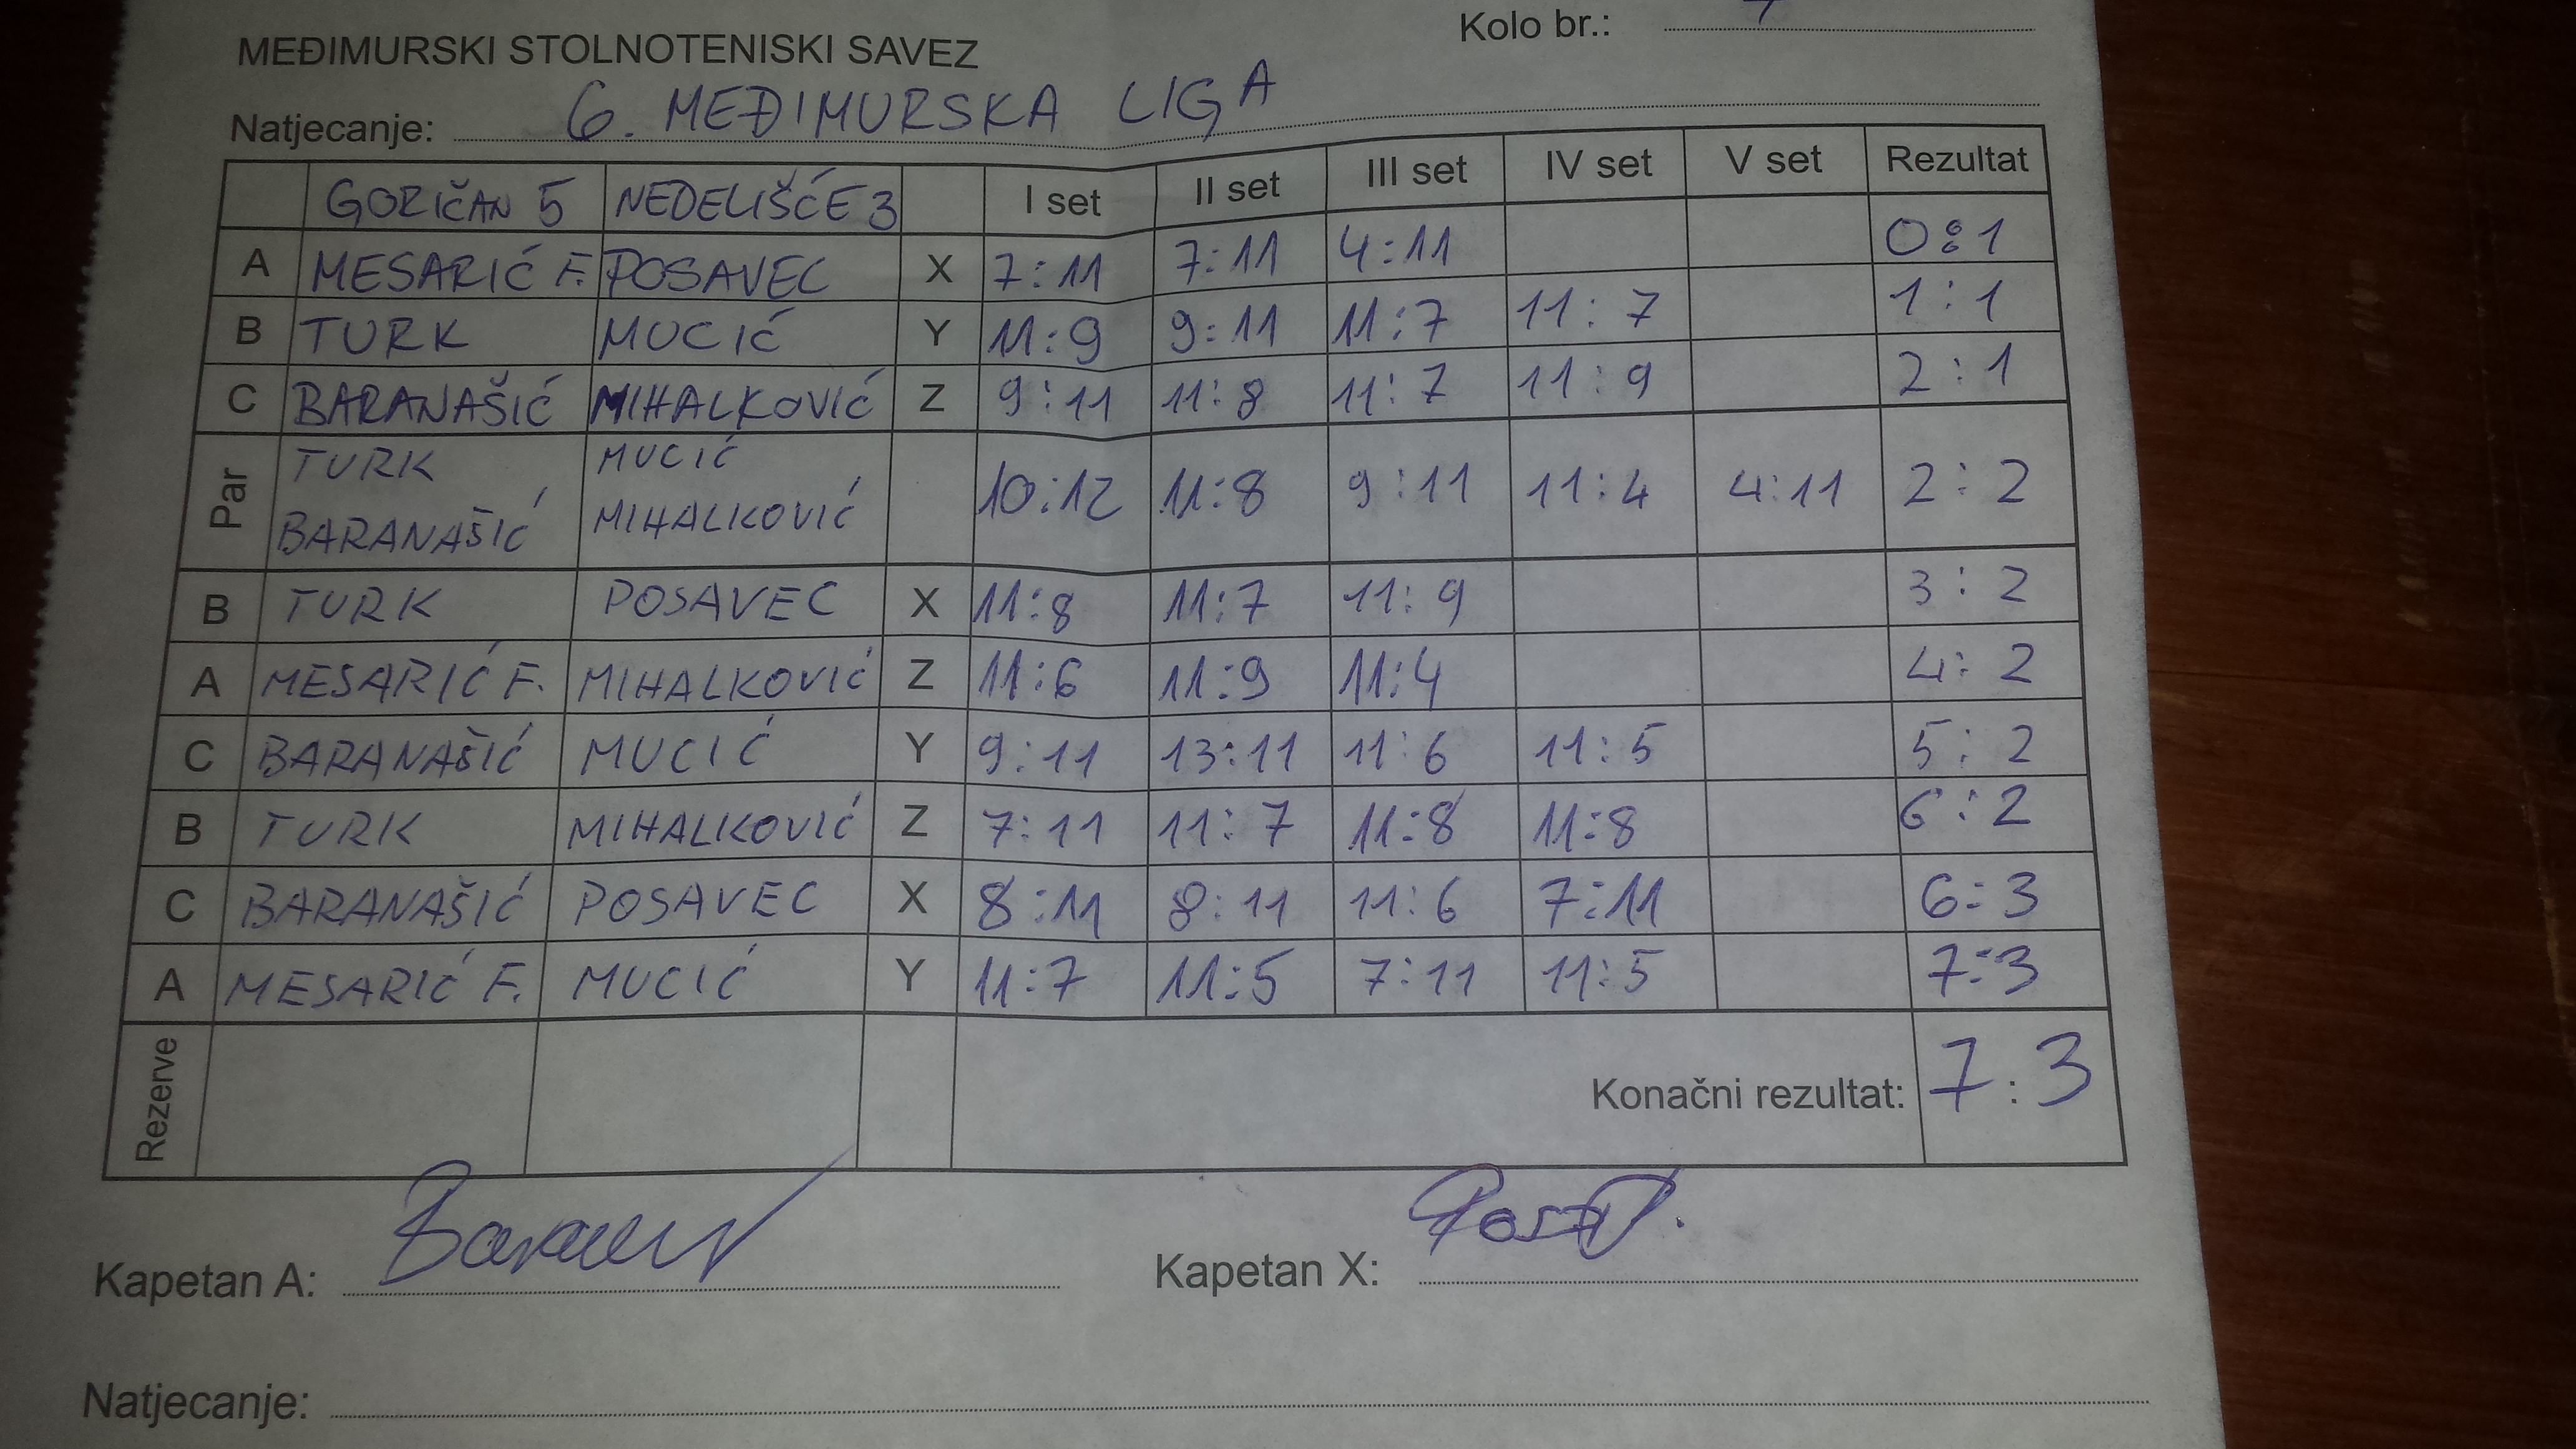 Kolo br.:
MEĐIMURSKI STOLNOTENISKI SAVEZ
Natjecanje: 6. MEĐIMURSKA LIGA
GORIČAN 5 NEDELIŠĆE 3 I set II set III set IV set V set Rezultat
A MESARIĆ F. POSAVEC X 7:11 7:11 4:11 0:1
B TURK MUCIĆ Y 11:9 9:11 11:7 11:7 1:1
C BARANAŠIĆ MIHALKOVIĆ Z 9:11 11:8 11:7 11:9 2:1
Par TURK BARANAŠIĆ MUCIĆ MIHALKOVIĆ 10:12 11:8 9:11 11:4 4:11 2:2
B TURK POSAVEC X 11:8 11:7 11:9 3:2
A MESARIĆ F. MIHALKOVIĆ Z 11:6 11:9 11:4 4:2
C BARANAŠIĆ MUCIĆ Y 9:11 13:11 11:6 11:5 5:2
B TURK MIHALKOVIĆ Z 7:11 11:7 11:8 11:8 6:2
C BARANAŠIĆ POSAVEC X 8:11 8:11 11:6 7:11 6:3
A MESARIĆ F. MUCIĆ Y 11:7 11:5 7:11 11:5 7:3
Rezerve Konačni rezultat: 7:3
Kapetan A: Kapetan X:
Natjecanje: